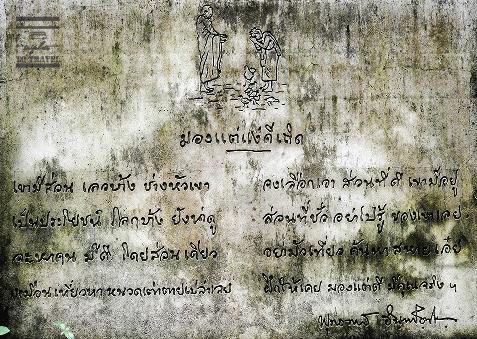 มองแต่แง่ดีเถิด
เขามีส่วน เลวบ้าง ช่างหัวเขา
จงเลือกเอา ส่วนที่ดี เขามีอยู่
เป็นประโยชน์ โลกบ้าง ยังน่าดู
ส่วนที่ชั่ว อย่าไปรู้ ของเขาเลย
จะหาคน มีดี โดยส่วนเดียว
อย่ามัวเที่ยว ค้นหา สหายเอ๋ย
เหมือนเที่ยวหา หนวดเต่า ตายเปล่าเลย
ฝึกให้เคย มองแต่ดี มีคุณจริง ฯ
พุทธทาส อินทปัญโญ